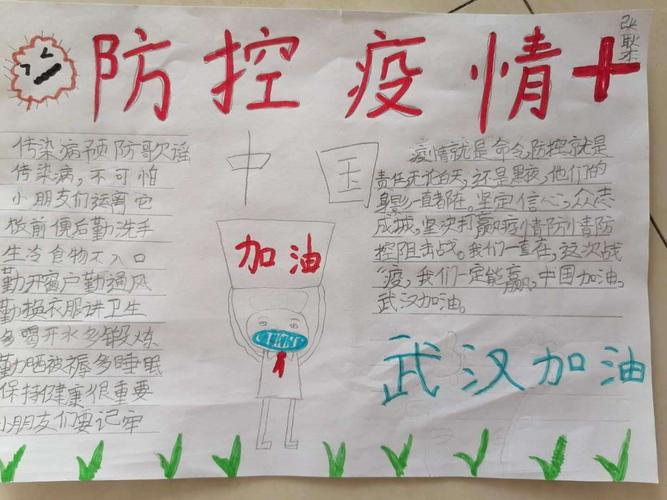 防控疫情
传染病预防歌谣
传染病,不可怕
小朋友们远离它
饭前便后勤洗手
生冷食物不入口
勤开窗户勤通风
勤换衣服讲卫生
多喝开水多锻炼
勤晒被褥多睡眠
保持健康很重要
小朋友们要记牢
中国
加油
疫情就是命令,防控就是
责任无论白天,还是黑夜,他们的
身影一直都在。坚定信心,众志
成城,坚决打赢疫情防情防
控阻击战。我们一直在,这次战
“疫,我们一定能赢,中国加油,
武汉加油。
武汉加油